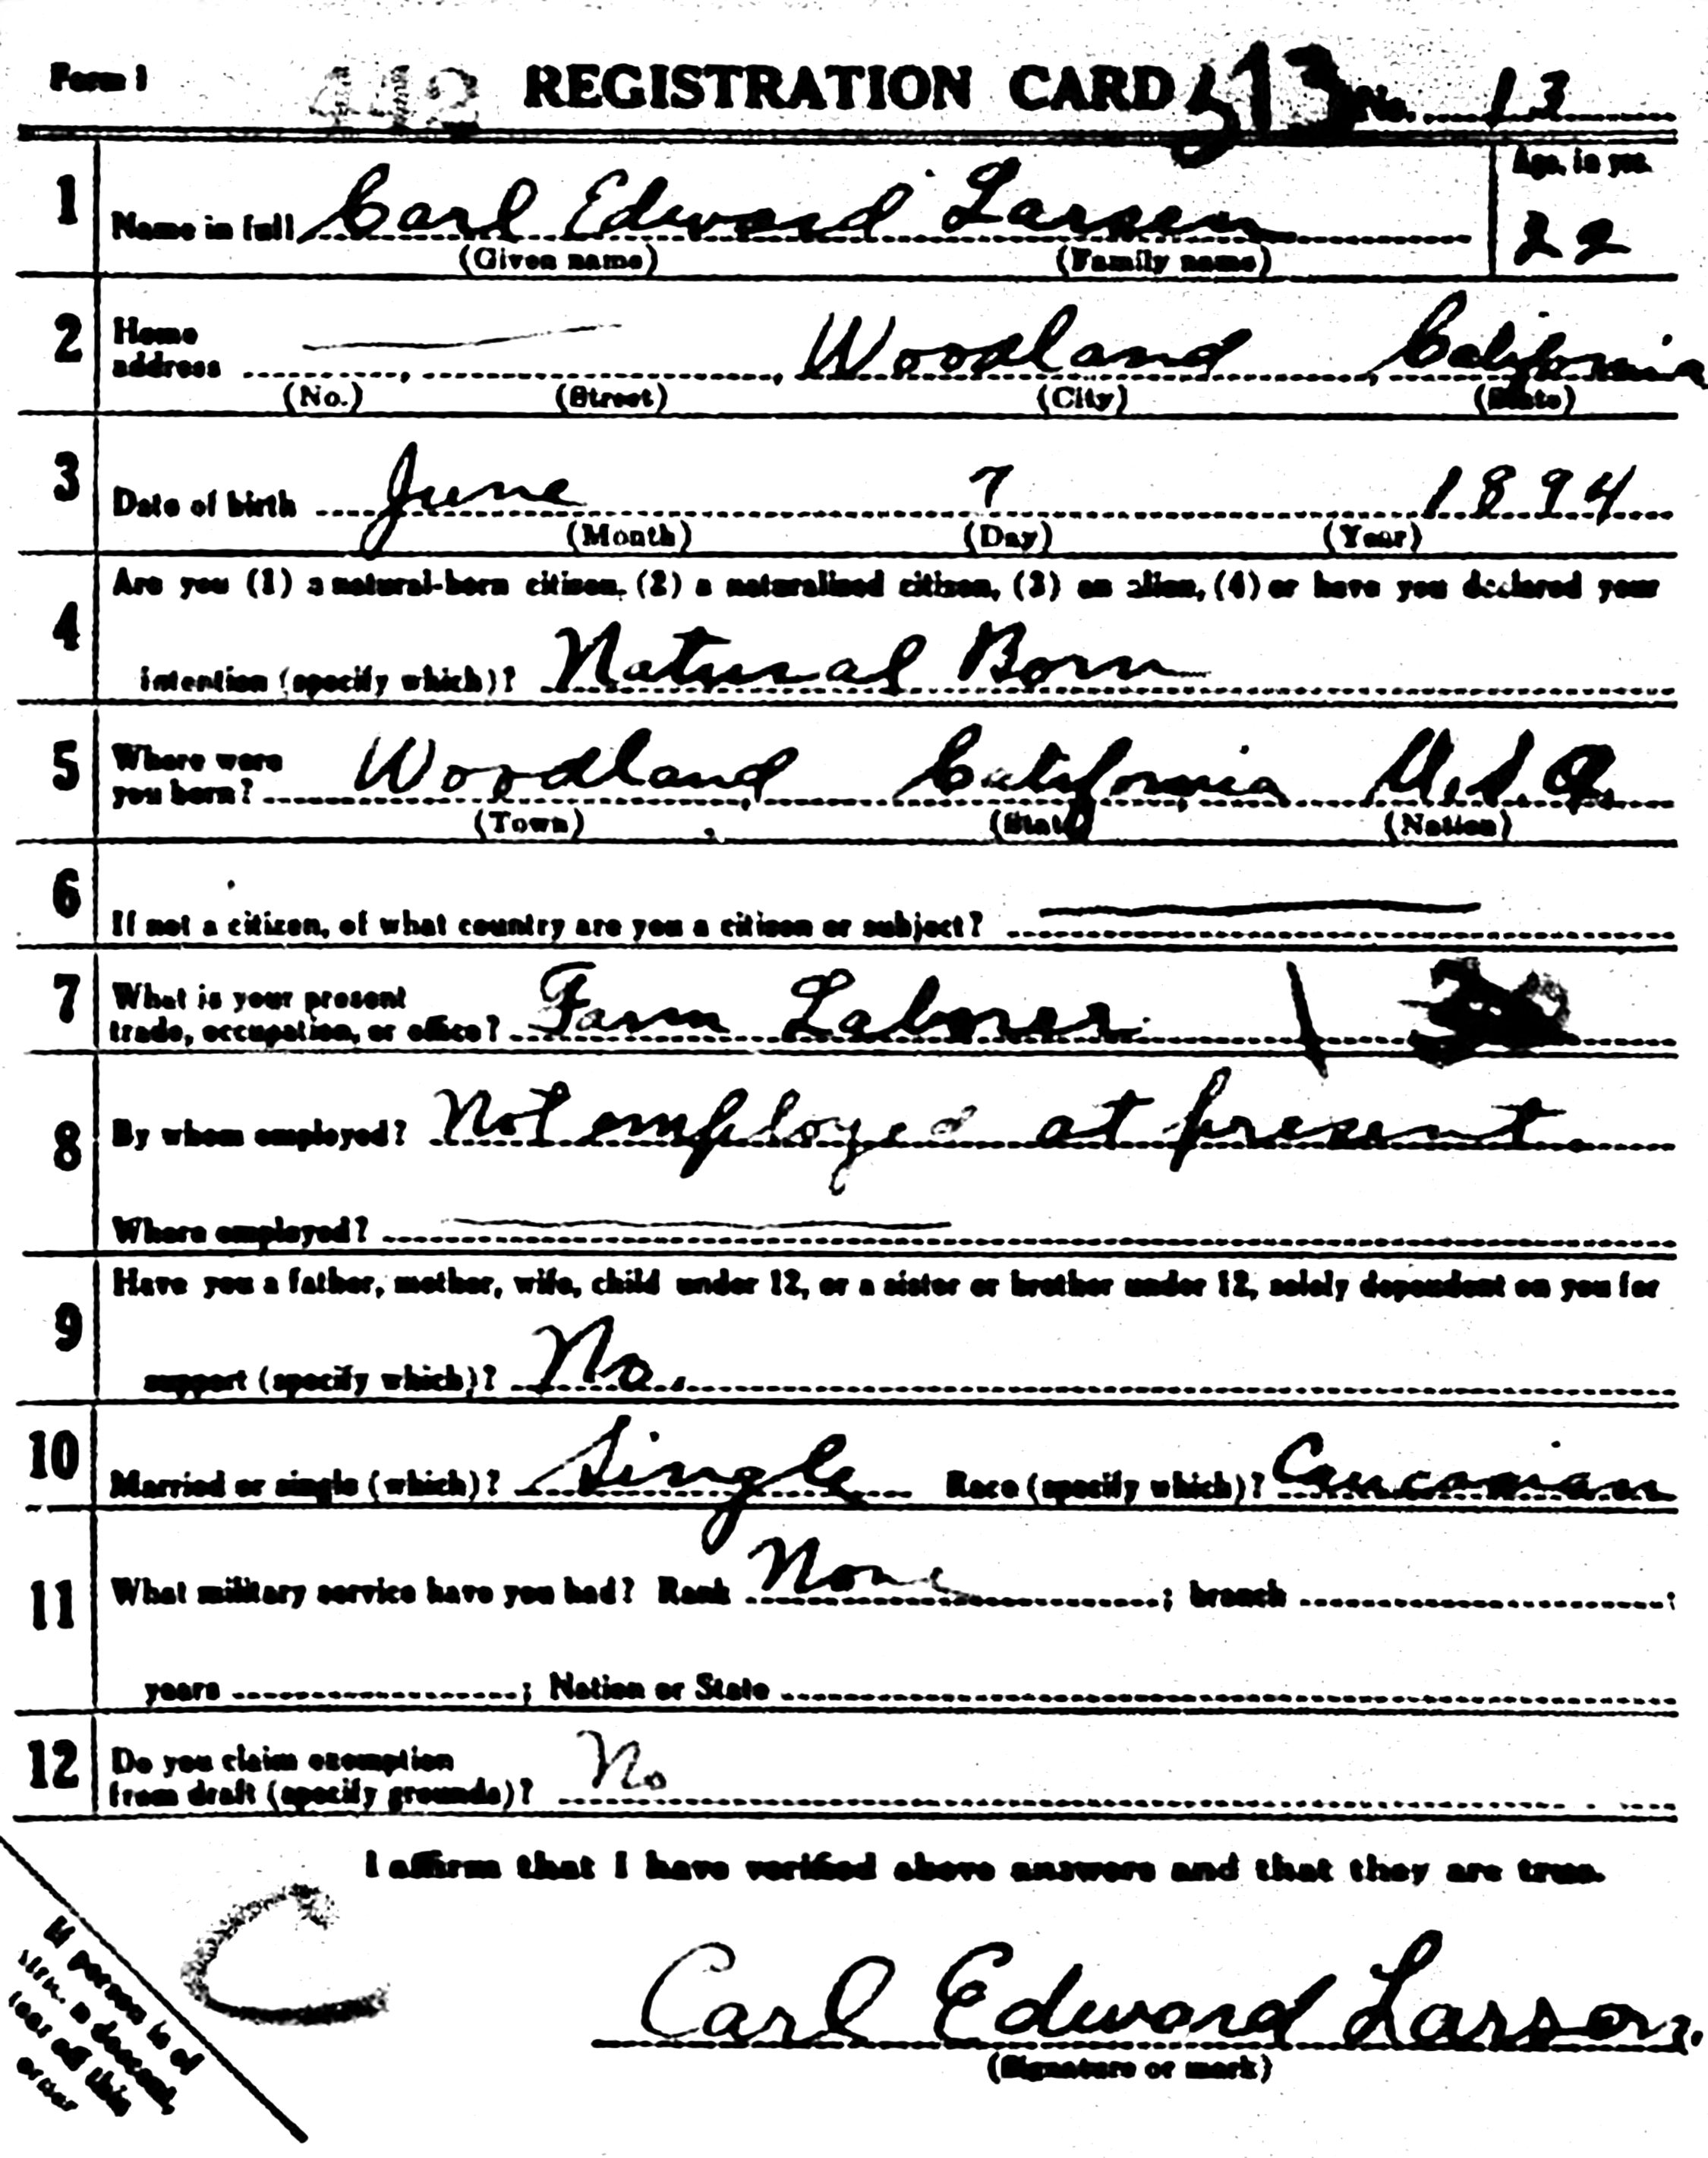 Form 1 442 REGISTRATION CARD 513 No. 13
1 Name in full Carl Edward Larsen Age, in yrs. 22
(Given name) (Family name)
2 Home address Woodland, California
(No.) (Street) (City) (State)
3 Date of birth June 7 1894
(Month) (Day) (Year)
Are you (1) a natural-born citizen, (2) a naturalized citizen, (3) an alien, (4) or have you declared your
4 intention (specify which)? Natural Born
5 Where were you born? Woodland, California, U.S.A.
(Town) (State) (Nation)
6 If not a citizen, of what country are you a citizen or subject?
7 What is your present
trade, occupation, or office? Farm Laborer
8 By whom employed? Not employed at present.
Where employed?
Have you a father, mother, wife, child under 12, or a sister or brother under 12, solely dependent on you for
9 support (specify which)? No.
10 Married or single (which)? Single Race (specify which)? Caucasian
11 What military service have you had? Rank None ; branch ;
years ; Nation or State
12 Do you claim exemption
from draft (specify grounds)? No
I affirm that I have verified above answers and that they are true.
C
Carl Edward Larson.
(Signature or mark)
If person is of